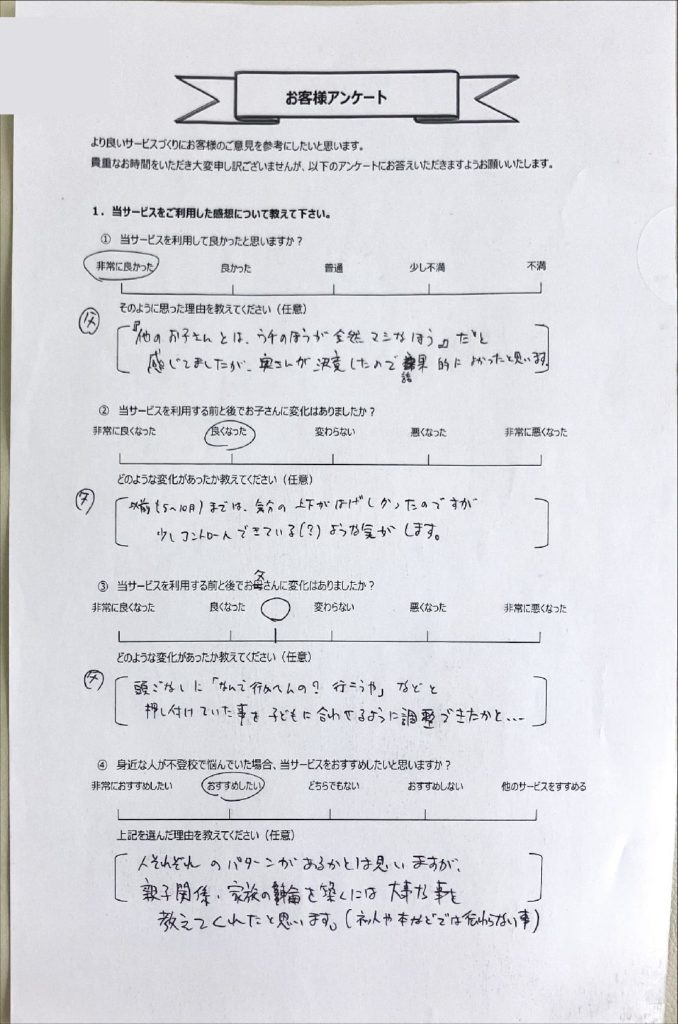 お客様アンケート
より良いサービスづくりにお客様のご意見を参考にしたいと思います。
貴重なお時間をいただき大変申し訳ございませんが、以下のアンケートにお答えいただきますようお願いいたします。
1．当サービスをご利用した感想について教えて下さい。
① 当サービスを利用して良かったと思いますか？
非常に良かった 良かった 普通 少し不満 不満
そのように思った理由を教えてください（任意）
父
『他のお子さんとは、ウチのほうが全然マシなほう』だと
感じてましたが、奥さんが決定したので結果的によかったと思います。
② 当サービスを利用する前と後でお子さんに変化はありましたか？
非常に良くなった 良くなった 変わらない 悪くなった 非常に悪くなった
どのような変化があったか教えてください（任意）
父
以前(5〜10月)までは、気分の上下がはげしかったのですが
少しコントロールできている(？)ような気がします。
父
③ 当サービスを利用する前と後でお母さんに変化はありましたか？
非常に良くなった 良くなった 変わらない 悪くなった 非常に悪くなった
どのような変化があったか教えてください（任意）
父
頭ごなしに「なんで行かへんの？行こうや」などと
押し付けていた事を子どもに合わせるように調整できたかと...
④ 身近な人が不登校で悩んでいた場合、当サービスをおすすめしたいと思いますか？
非常におすすめしたい おすすめしたい どちらでもない おすすめしない 他のサービスをすすめる
上記を選んだ理由を教えてください（任意）
人それぞれのパターンがあるかとは思いますが、
親子関係・家族の輪を築くには大事な事を
教えてくれたと思います。(ネットや本などでは伝わらない事)